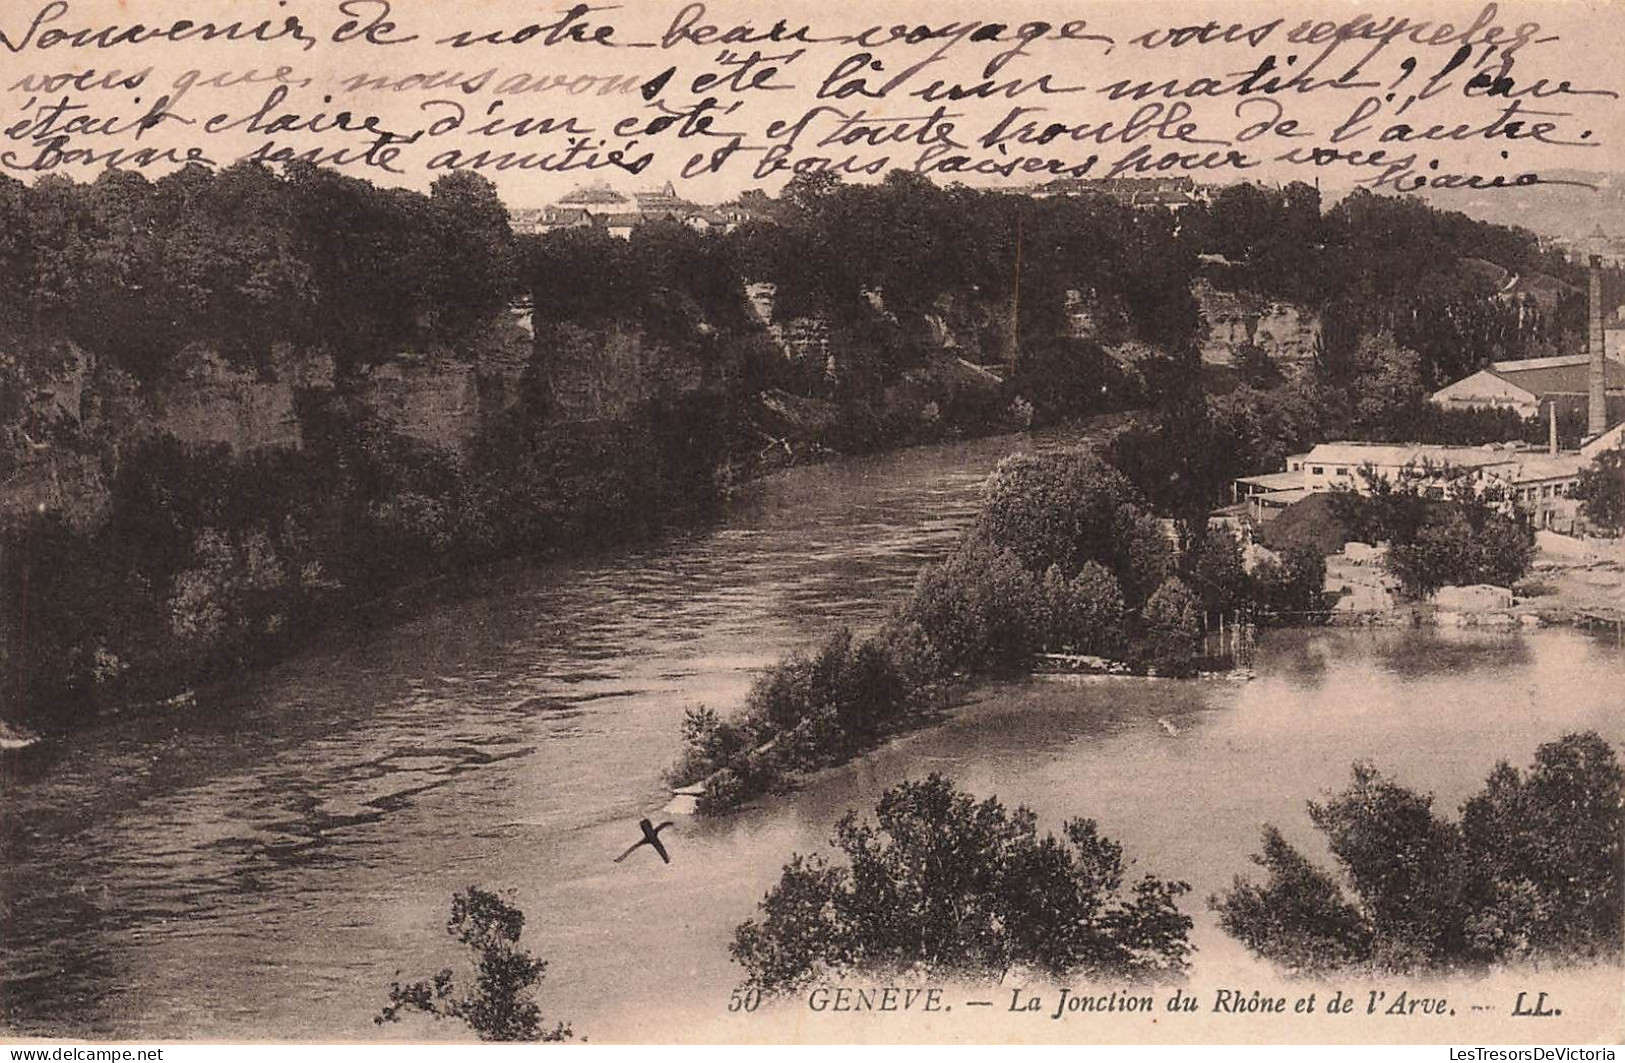 Souvenir de notre beau voyage, vous rappelez-
vous que nous avons été là un matin, l'eau
était claire d'un côté et toute trouble de l'autre.
Bonne santé amitiés et bons baisers pour vous. Marie
50 GENÈVE. — La Jonction du Rhône et de l'Arve. — LL.
LesTresorsDeVictoria